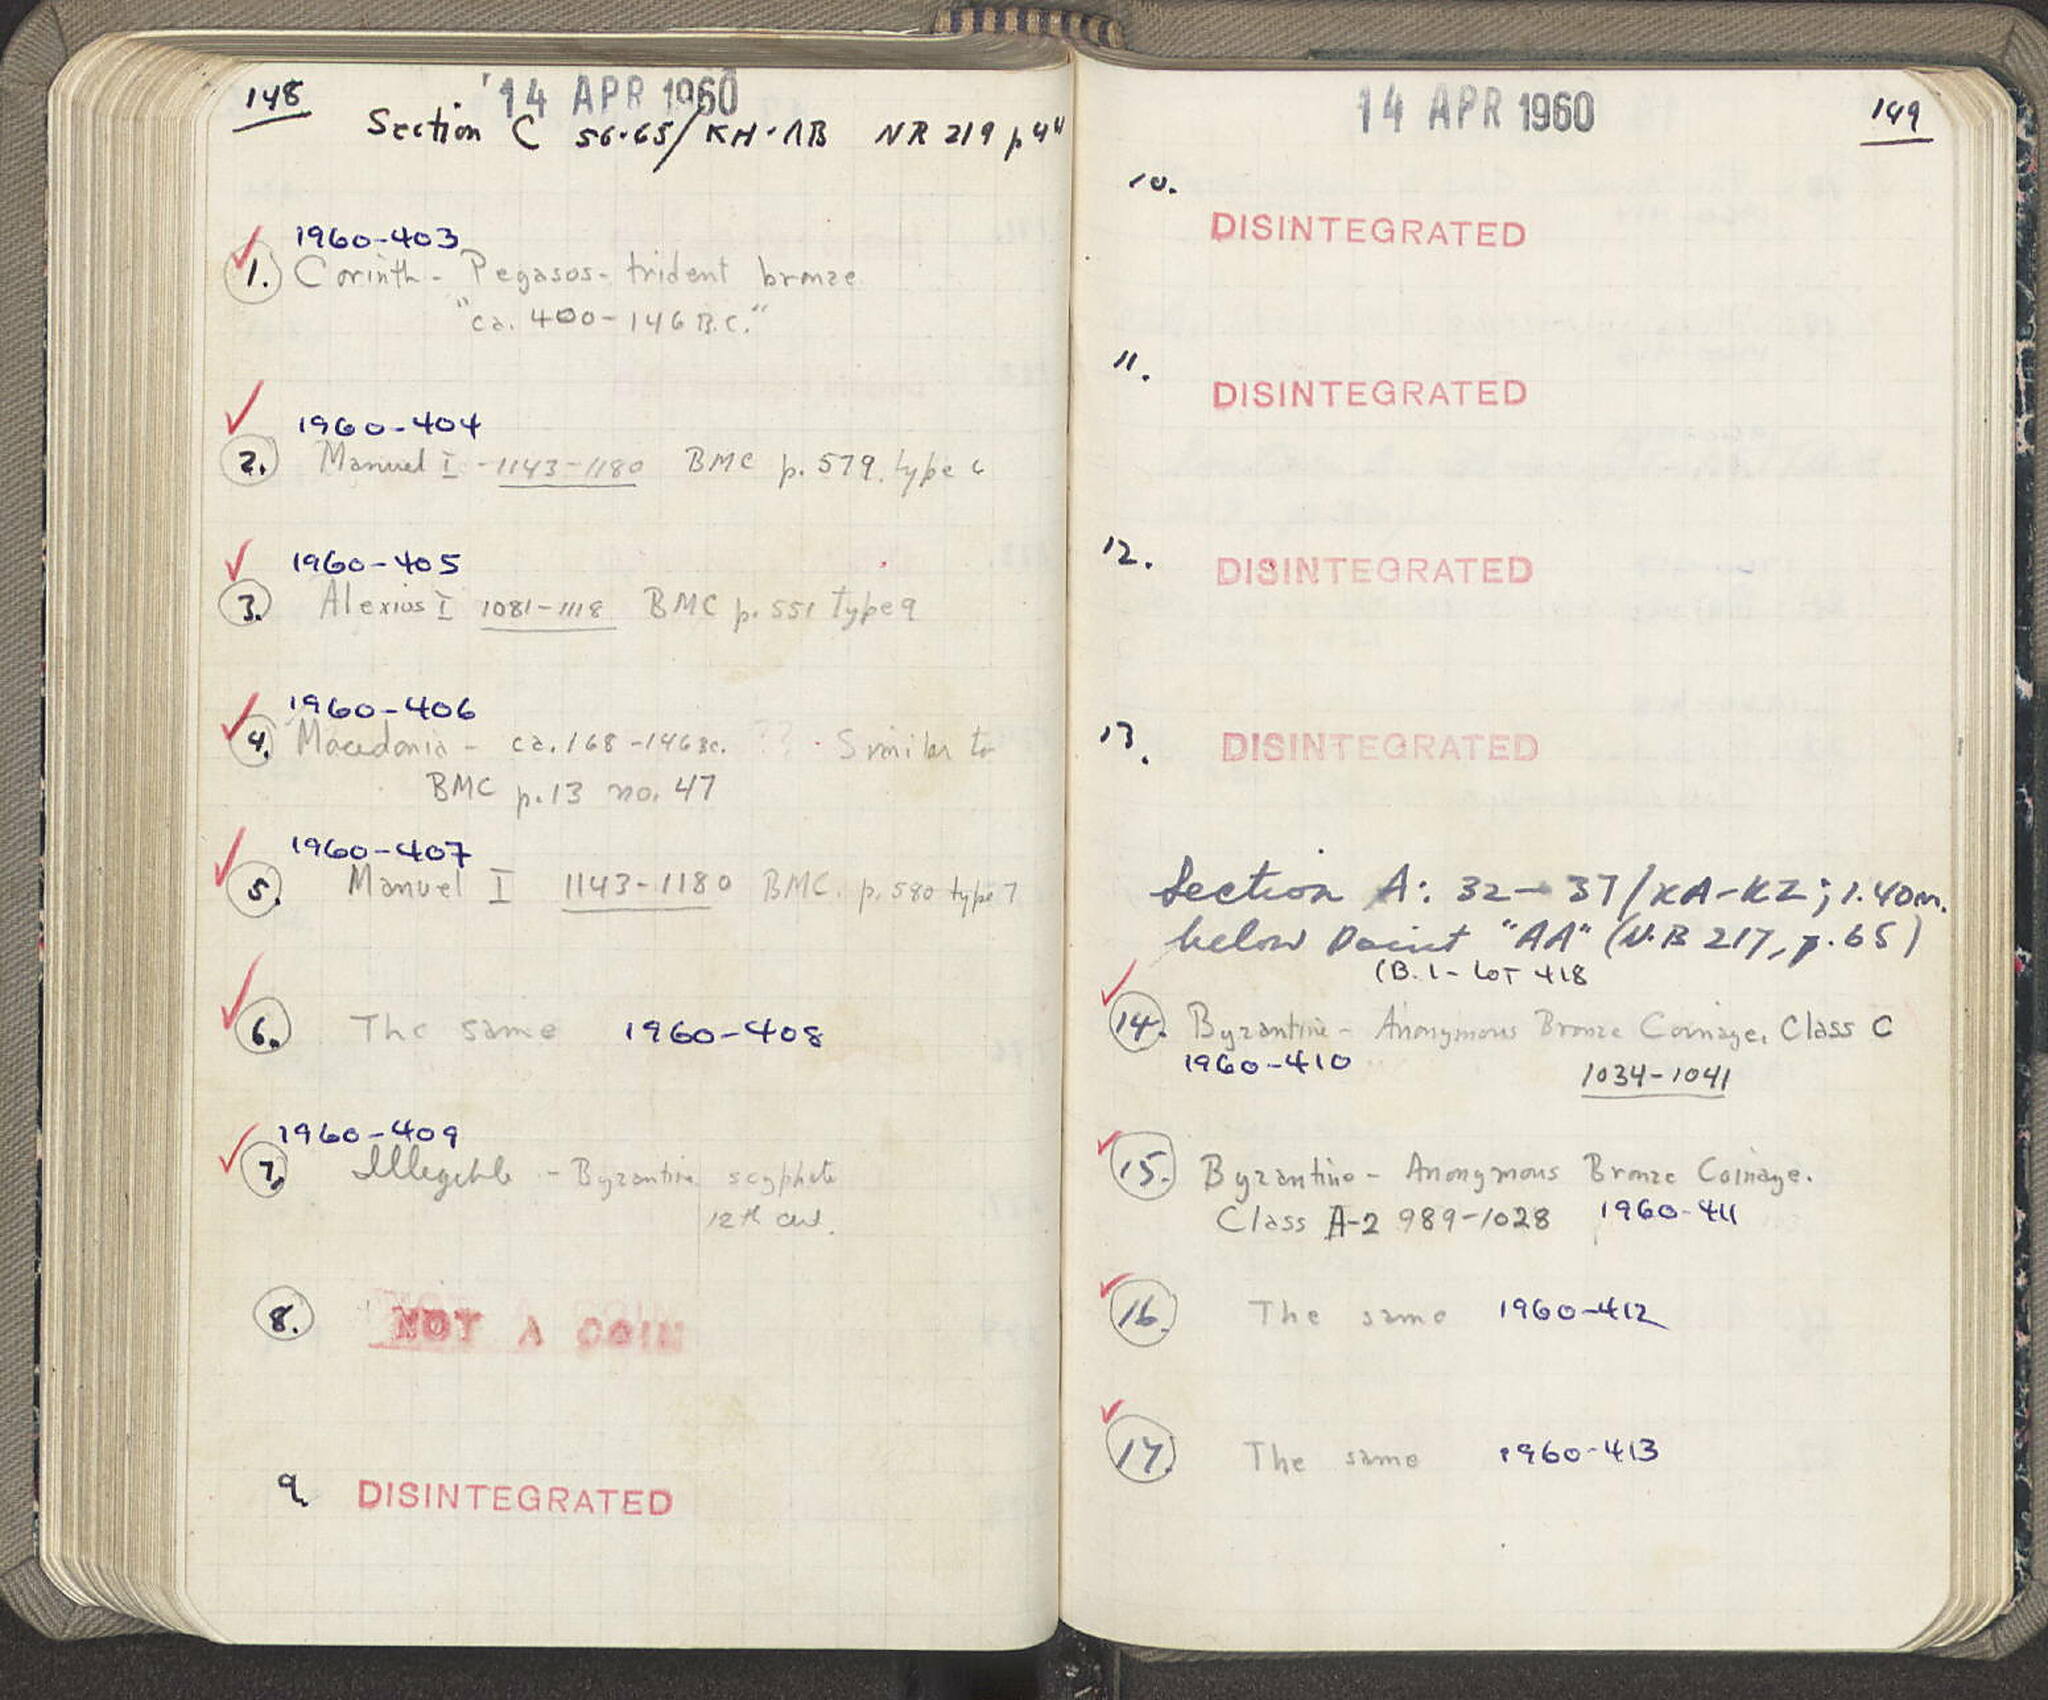 148
14 APR 1960
Section C 56-65/KH-ΛB NR 219 p 44
1960-403
1. Corinth - Pegasos - trident bronze
"ca. 400-146 B.C."
1960-404
2. Manuel I - 1143-1180 BMC p. 579. type 6
1960-405
3. Alexius I 1081-1118 BMC p. 551 type 9
1960-406
4. Macedonia - ca. 168-146 BC. ?? Similar to
BMC p. 13 no. 47
1960-407
5. Manuel I 1143-1180 BMC. p. 580 type 7
6. The same 1960-408
1960-409
7. Illegible - Byzantine scyphate
12th cent.
8. NOT A COIN
9. DISINTEGRATED
14 APR 1960
149
10.
DISINTEGRATED
11.
DISINTEGRATED
12.
DISINTEGRATED
13.
DISINTEGRATED
Section A: 32-37/KA-KZ; 1.40m.
below Point "AA" (N.B 217, p. 65)
(B. 1 - LOT 418
14. Byzantine - Anonymous Bronze Coinage. Class C
1960-410
1034-1041
15. Byzantine - Anonymous Bronze Coinage.
Class A-2 989-1028 1960-411
16. The same 1960-412
17. The same 1960-413